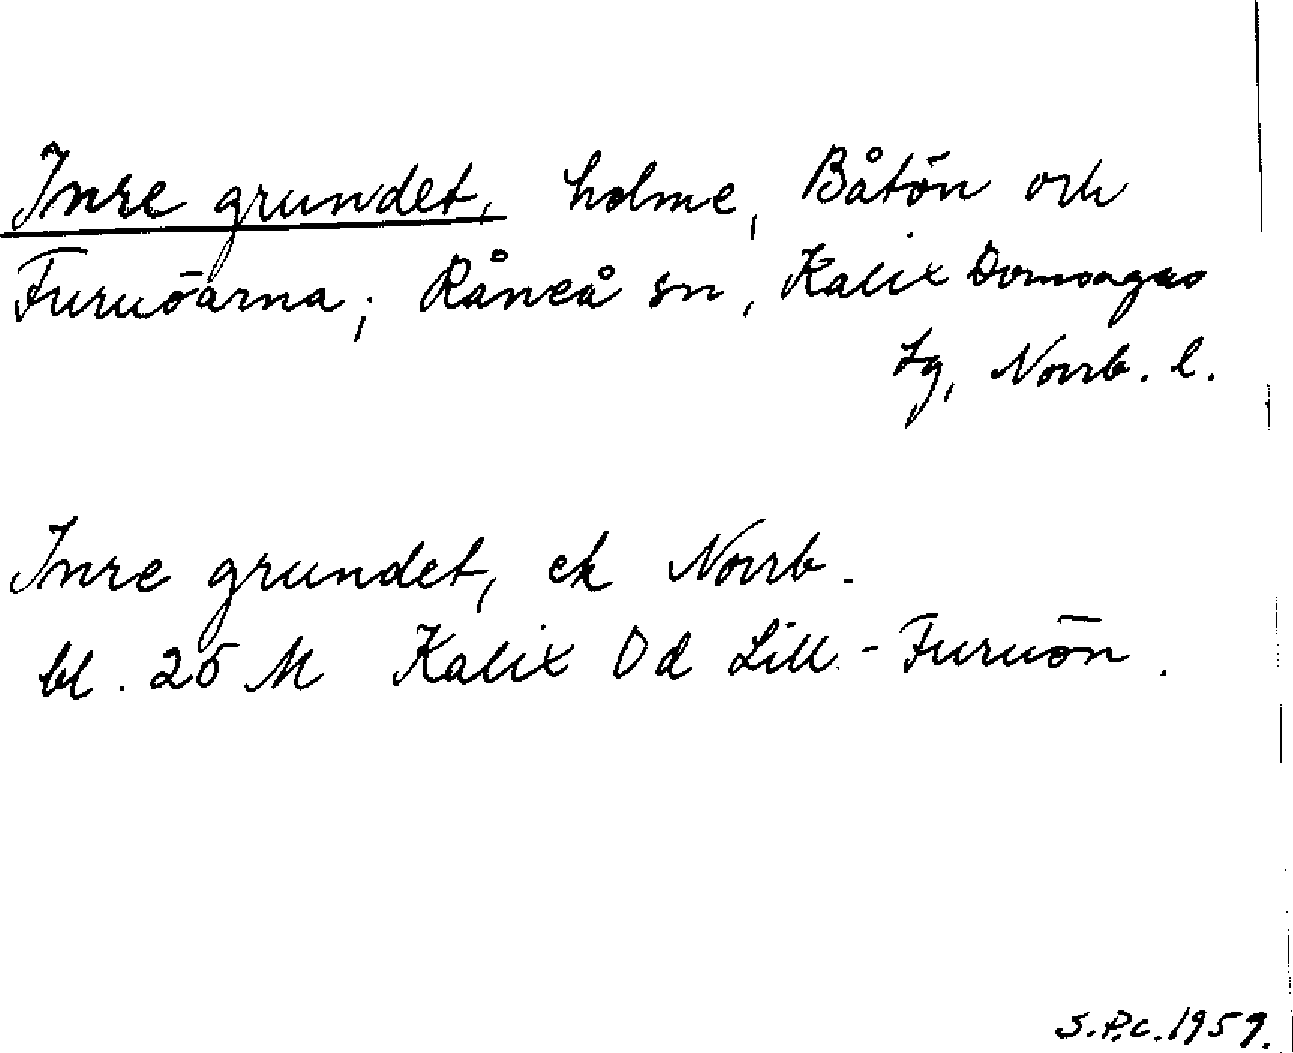 Inre grundet, holme, Båtön och
Furuöarna; Råneå sn, Kalix Domsagas
tg, Norrb. l.
Inre grundet, ek Norrb.
bl. 25 M Kalix Dd Lill-Furuön.
S.P.C. 1959.